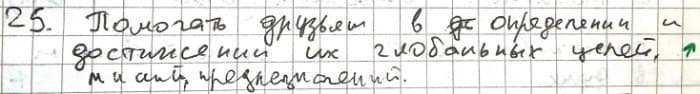 25. Помогать друзьям в определении и
достижении их глобальных целей, ↑
миссий, предназначений.